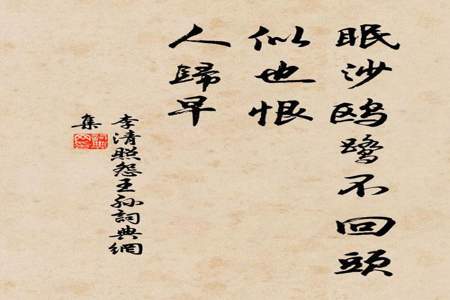 眠沙鸥鹭不回頭
似也恨
人歸早
李清照怨王孙詞典網
集